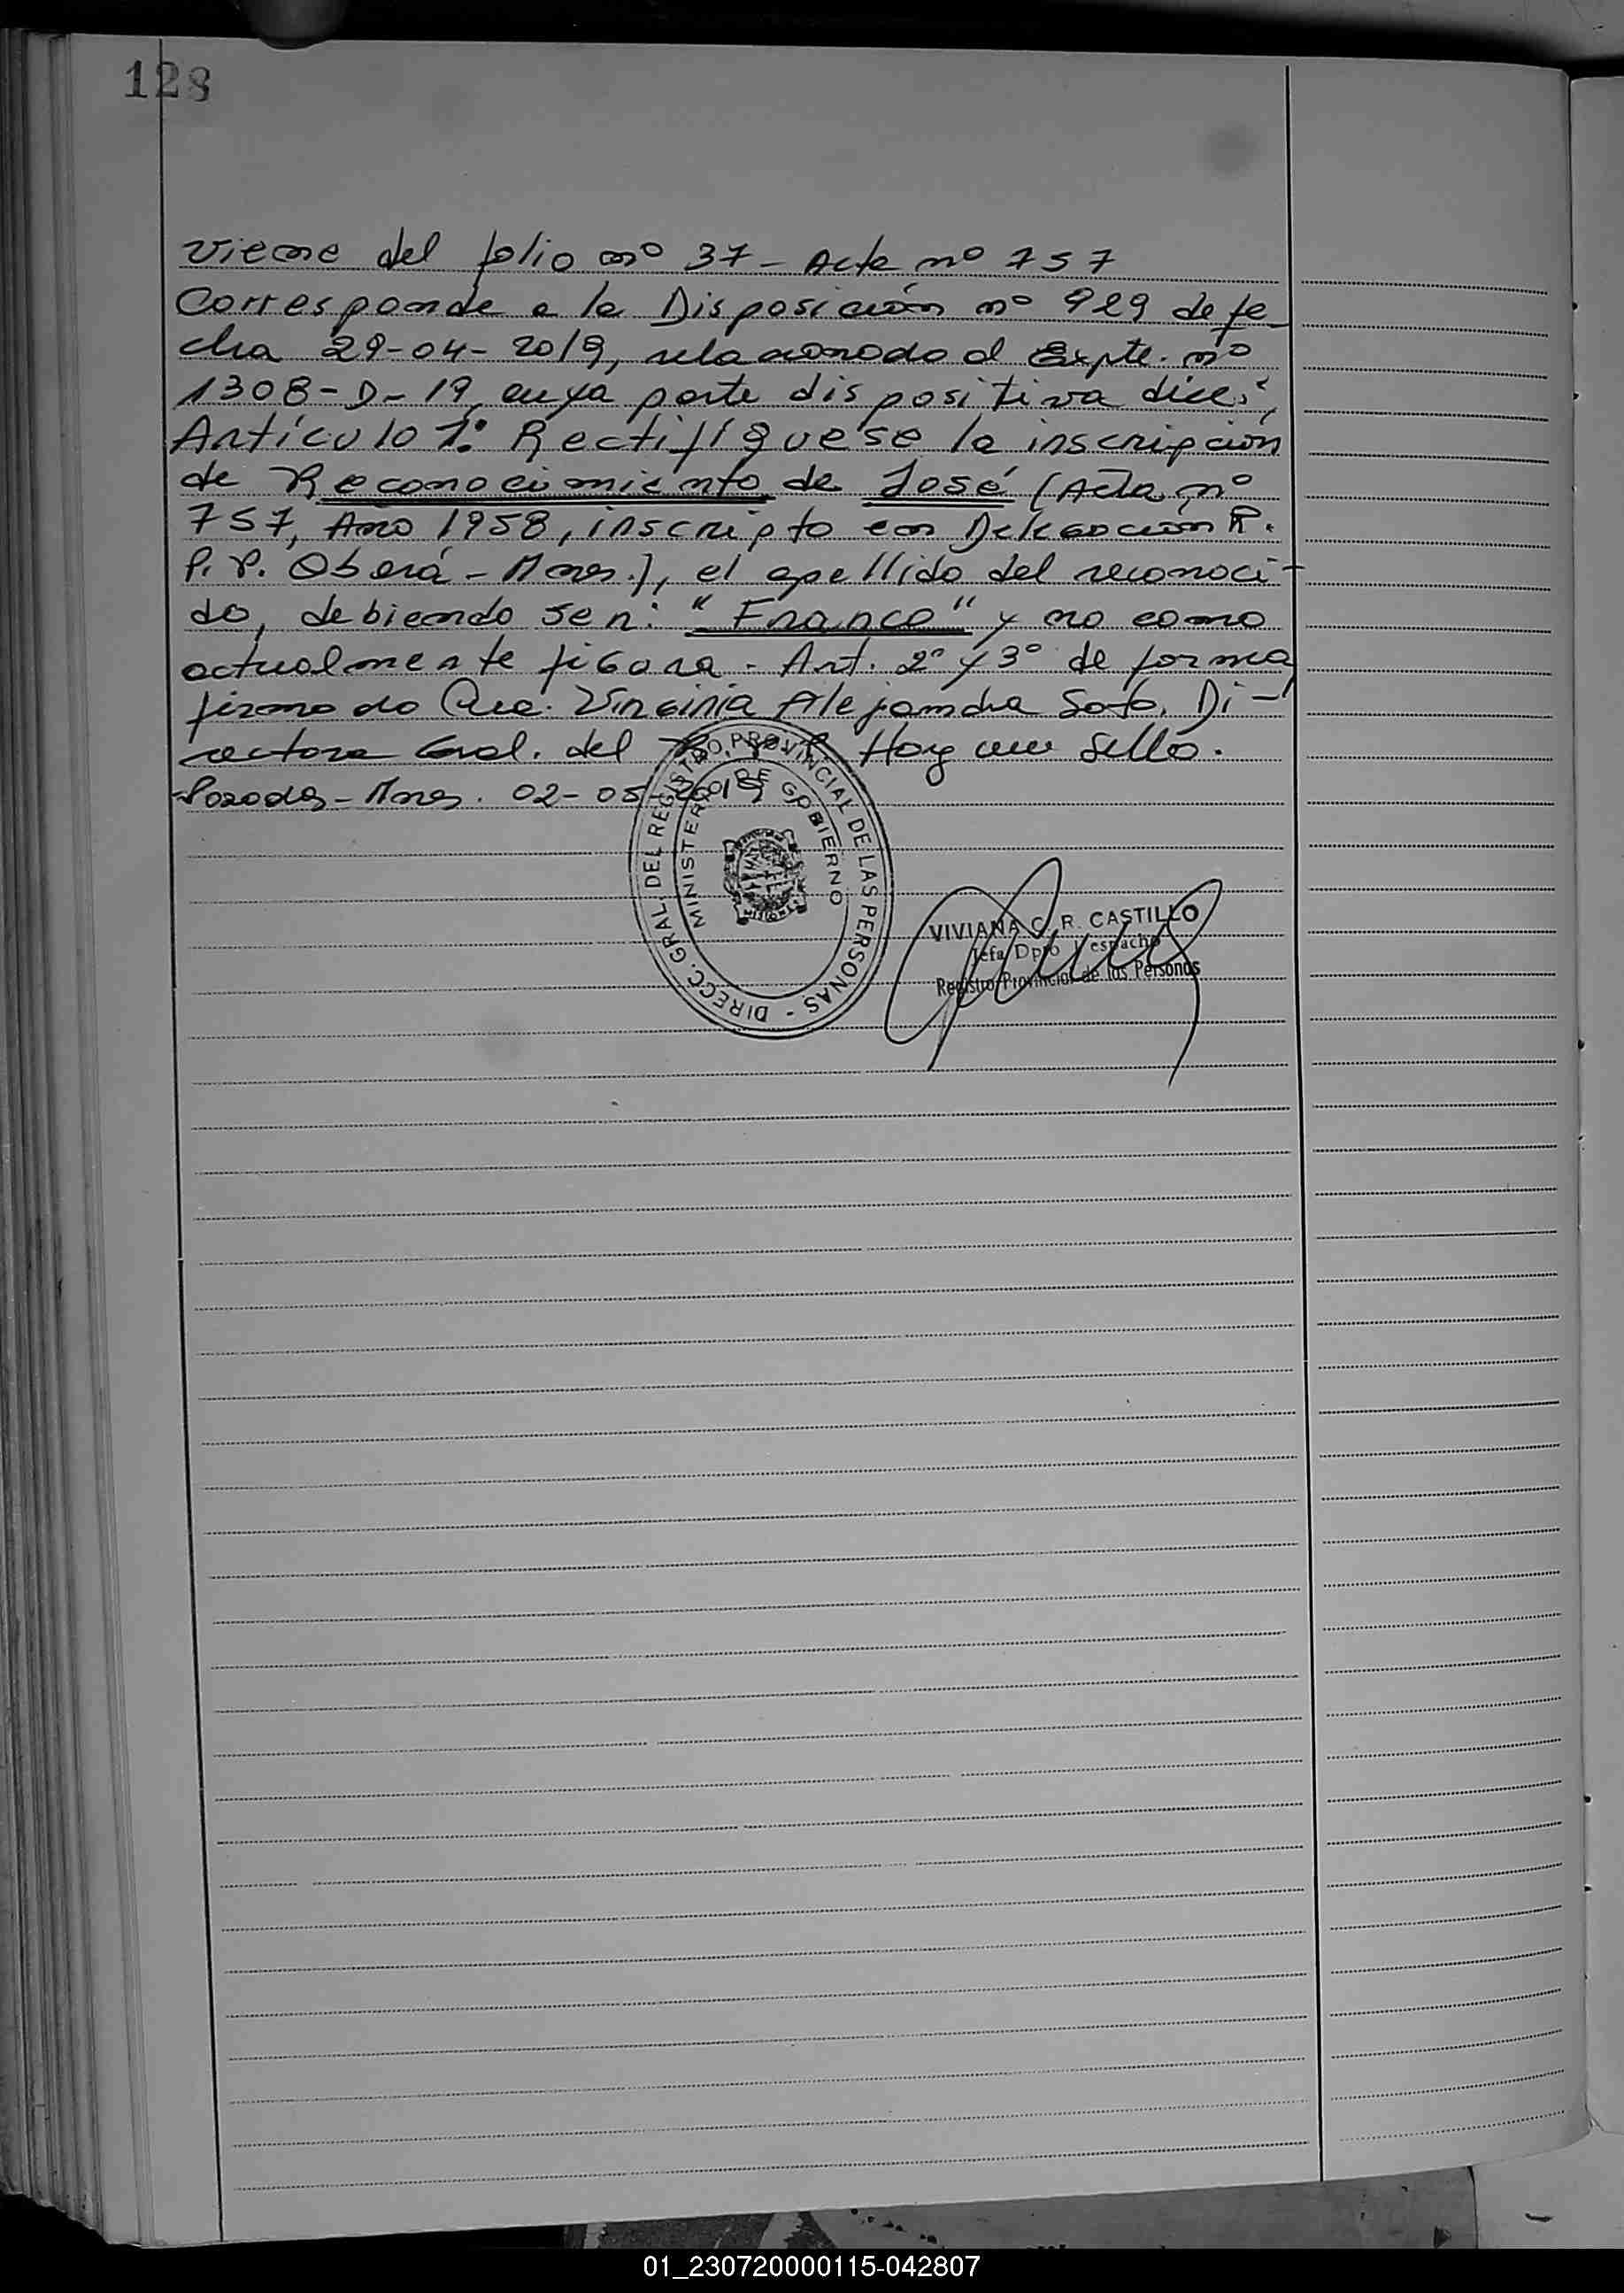 128
Viene del folio nº 37 - Acta nº 757
Corresponde a la Disposición nº 929 de fe-
cha 29-04-2019, relacionado al Expte. nº
1308-D-19, cuya parte dispositiva dice:
Artículo 1º: Rectifíquese la inscripción
de Reconocimiento de José (Acta nº
757, Año 1958, inscripto en Delegación R.
P. P. Oberá - Mnes.), el apellido del reconoci-
do, debiendo ser: "Franco" y no como
actualmente figura. Art. 2º y 3º de forma
firmado Virginia Alejandra Soto. Di-
rectora Gral. del R. P. P. Hay un sello.
Posadas - Mnes. 02-05-2019
DIRECC. GRAL. DEL REGISTRO PROVINCIAL DE LAS PERSONAS -
MINISTERIO DE GOBIERNO
MISIONES
VIVIANA C. R. CASTILLO
Jefa Dpto Despacho
Registro Provincial de las Personas
01_230720000115-042807